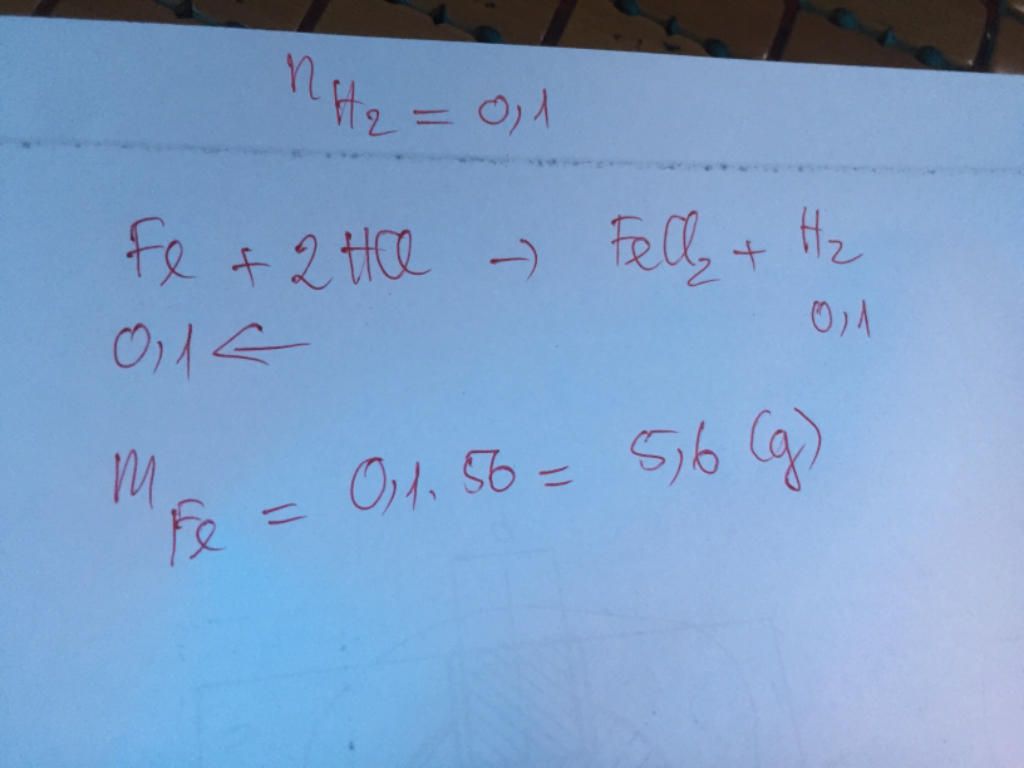 n H₂ = 0,1
Fe + 2HCl → FeCl₂ + H₂
0,1 ← 0,1
m Fe = 0,1. 56 = 5,6 (g)